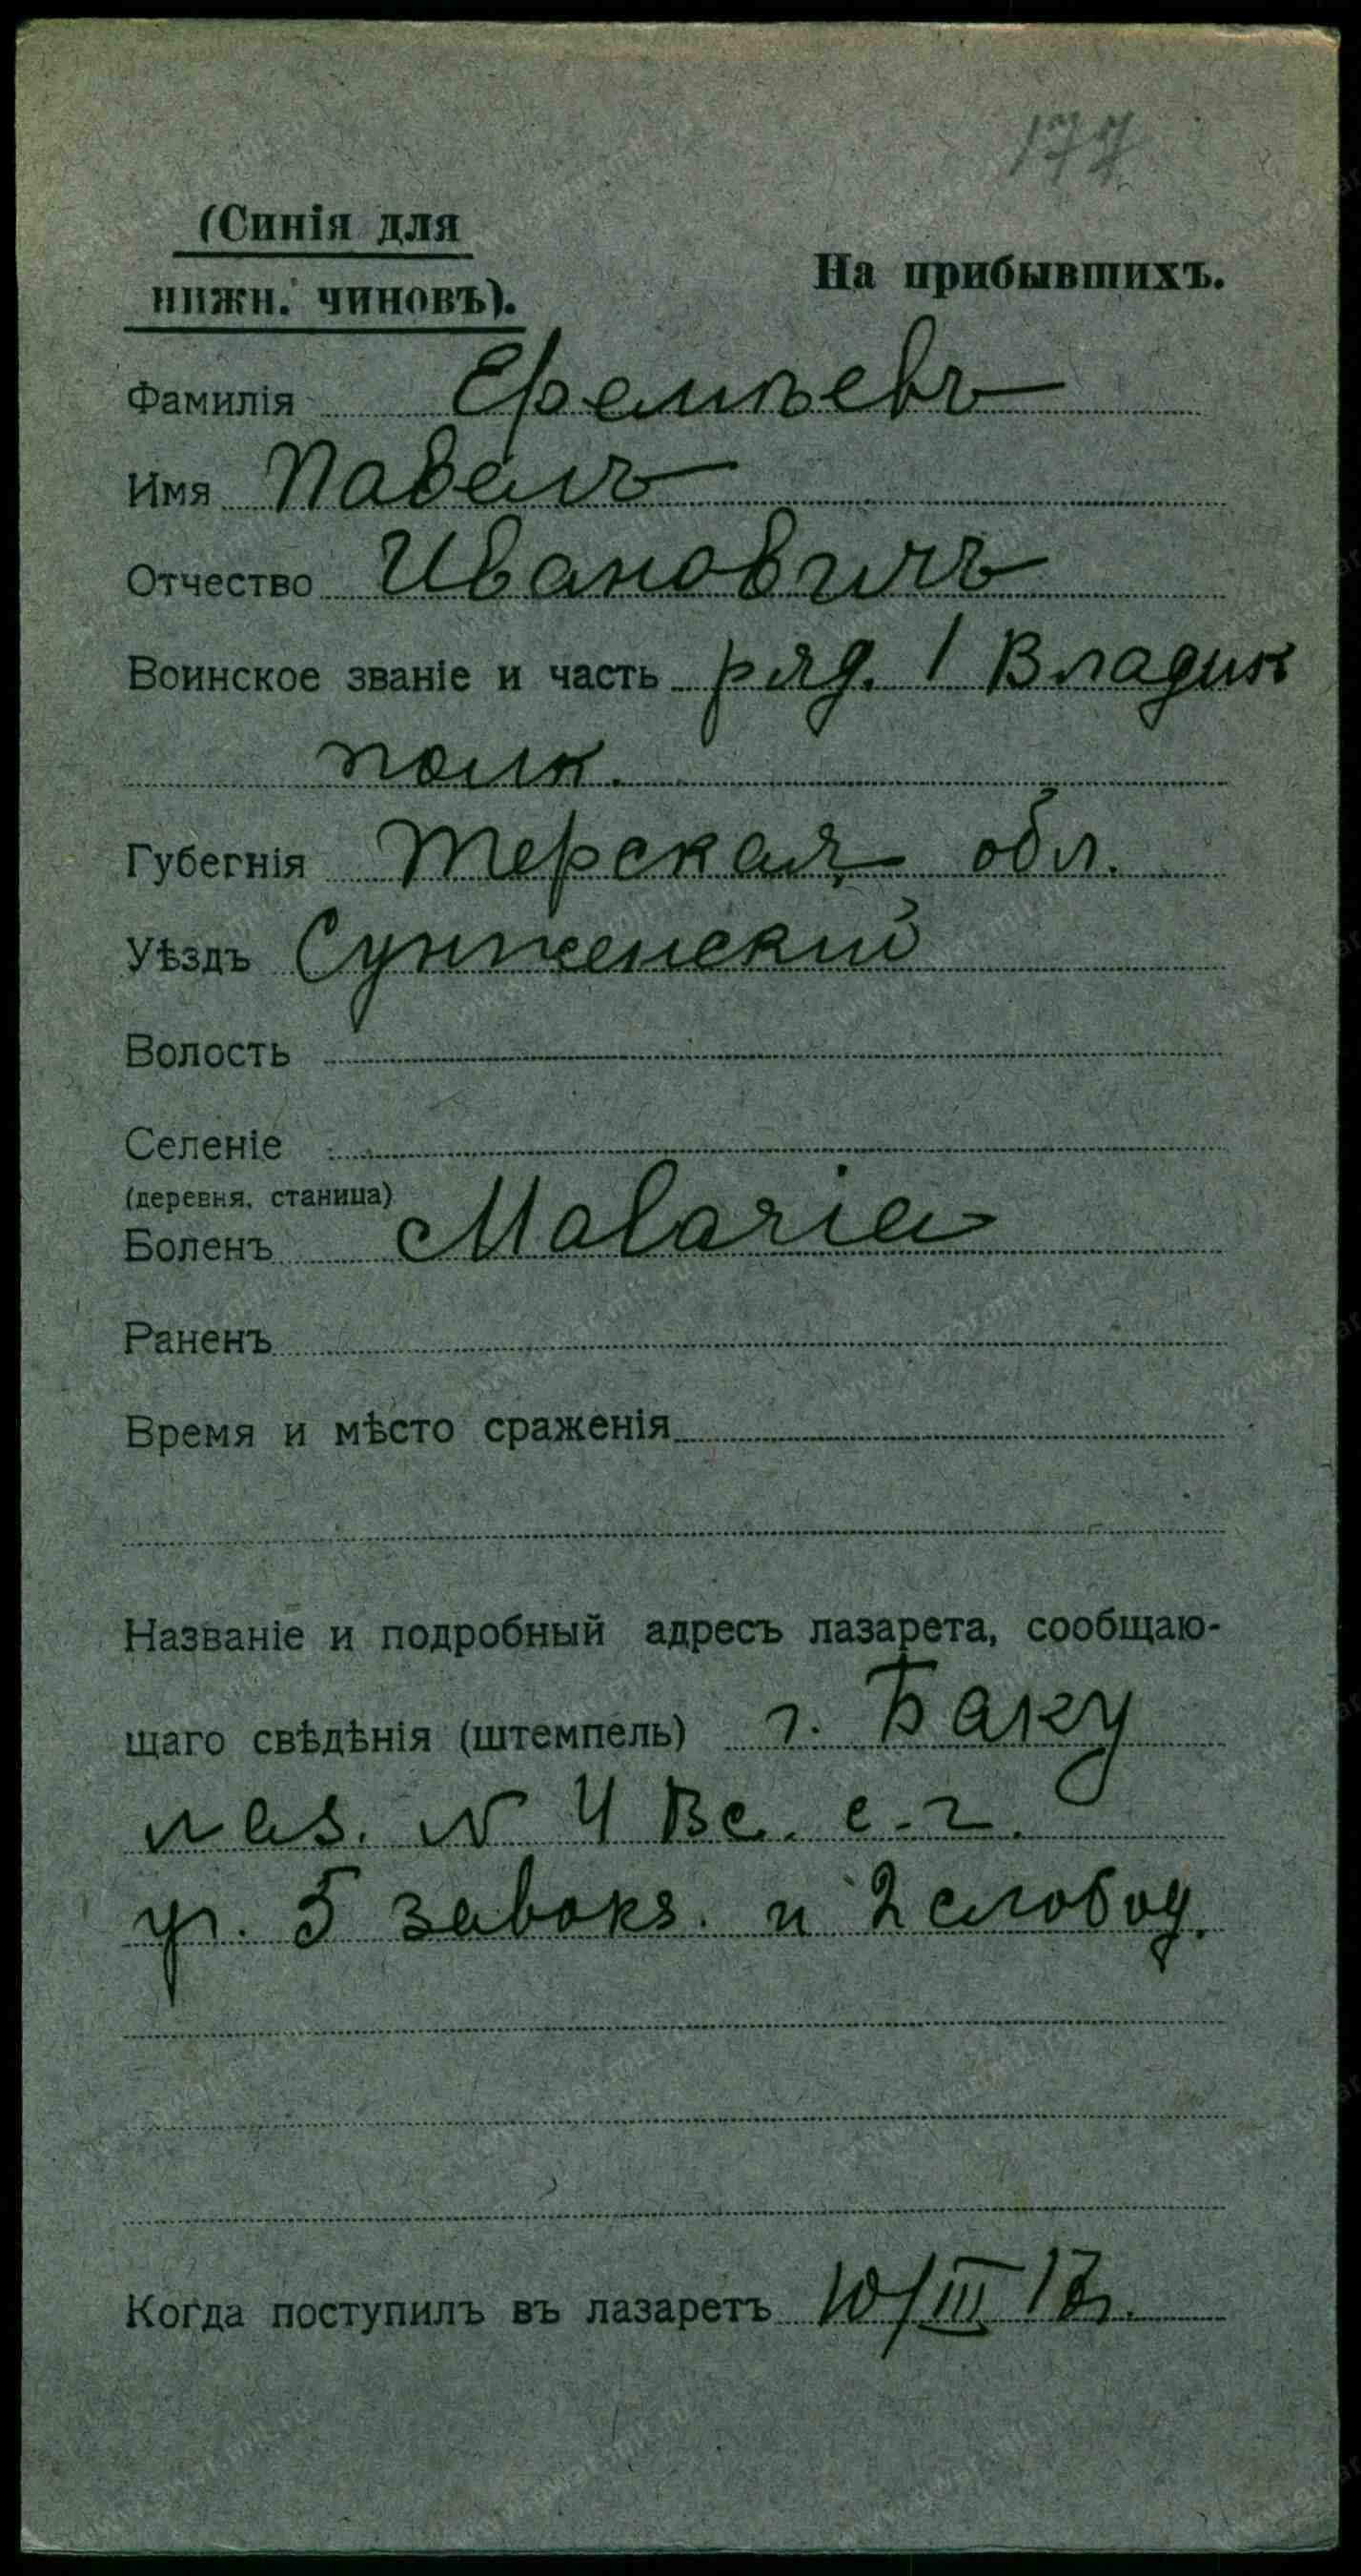 177
(Синія для
нижн. чиновъ).
На прибывшихъ.
Фамилія Еремѣевъ
Имя Павелъ
Отчество Ивановичъ
Воинское званіе и часть ряд. 1 Владик
полк.
Губегнія Терская обл.
Уѣздъ Сунженский
Волость
Селеніе
(деревня, станица)
Боленъ Malaria
Раненъ
Время и мѣсто сраженія
Названіе и подробный адресъ лазарета, сообщаю-
щаго свѣдѣнія (штемпель) г. Баку
лаз. N 4 Вс. с. г.
уг. 5 завокз. и 2 слобод.
Когда поступилъ въ лазаретъ 10/III 17г.